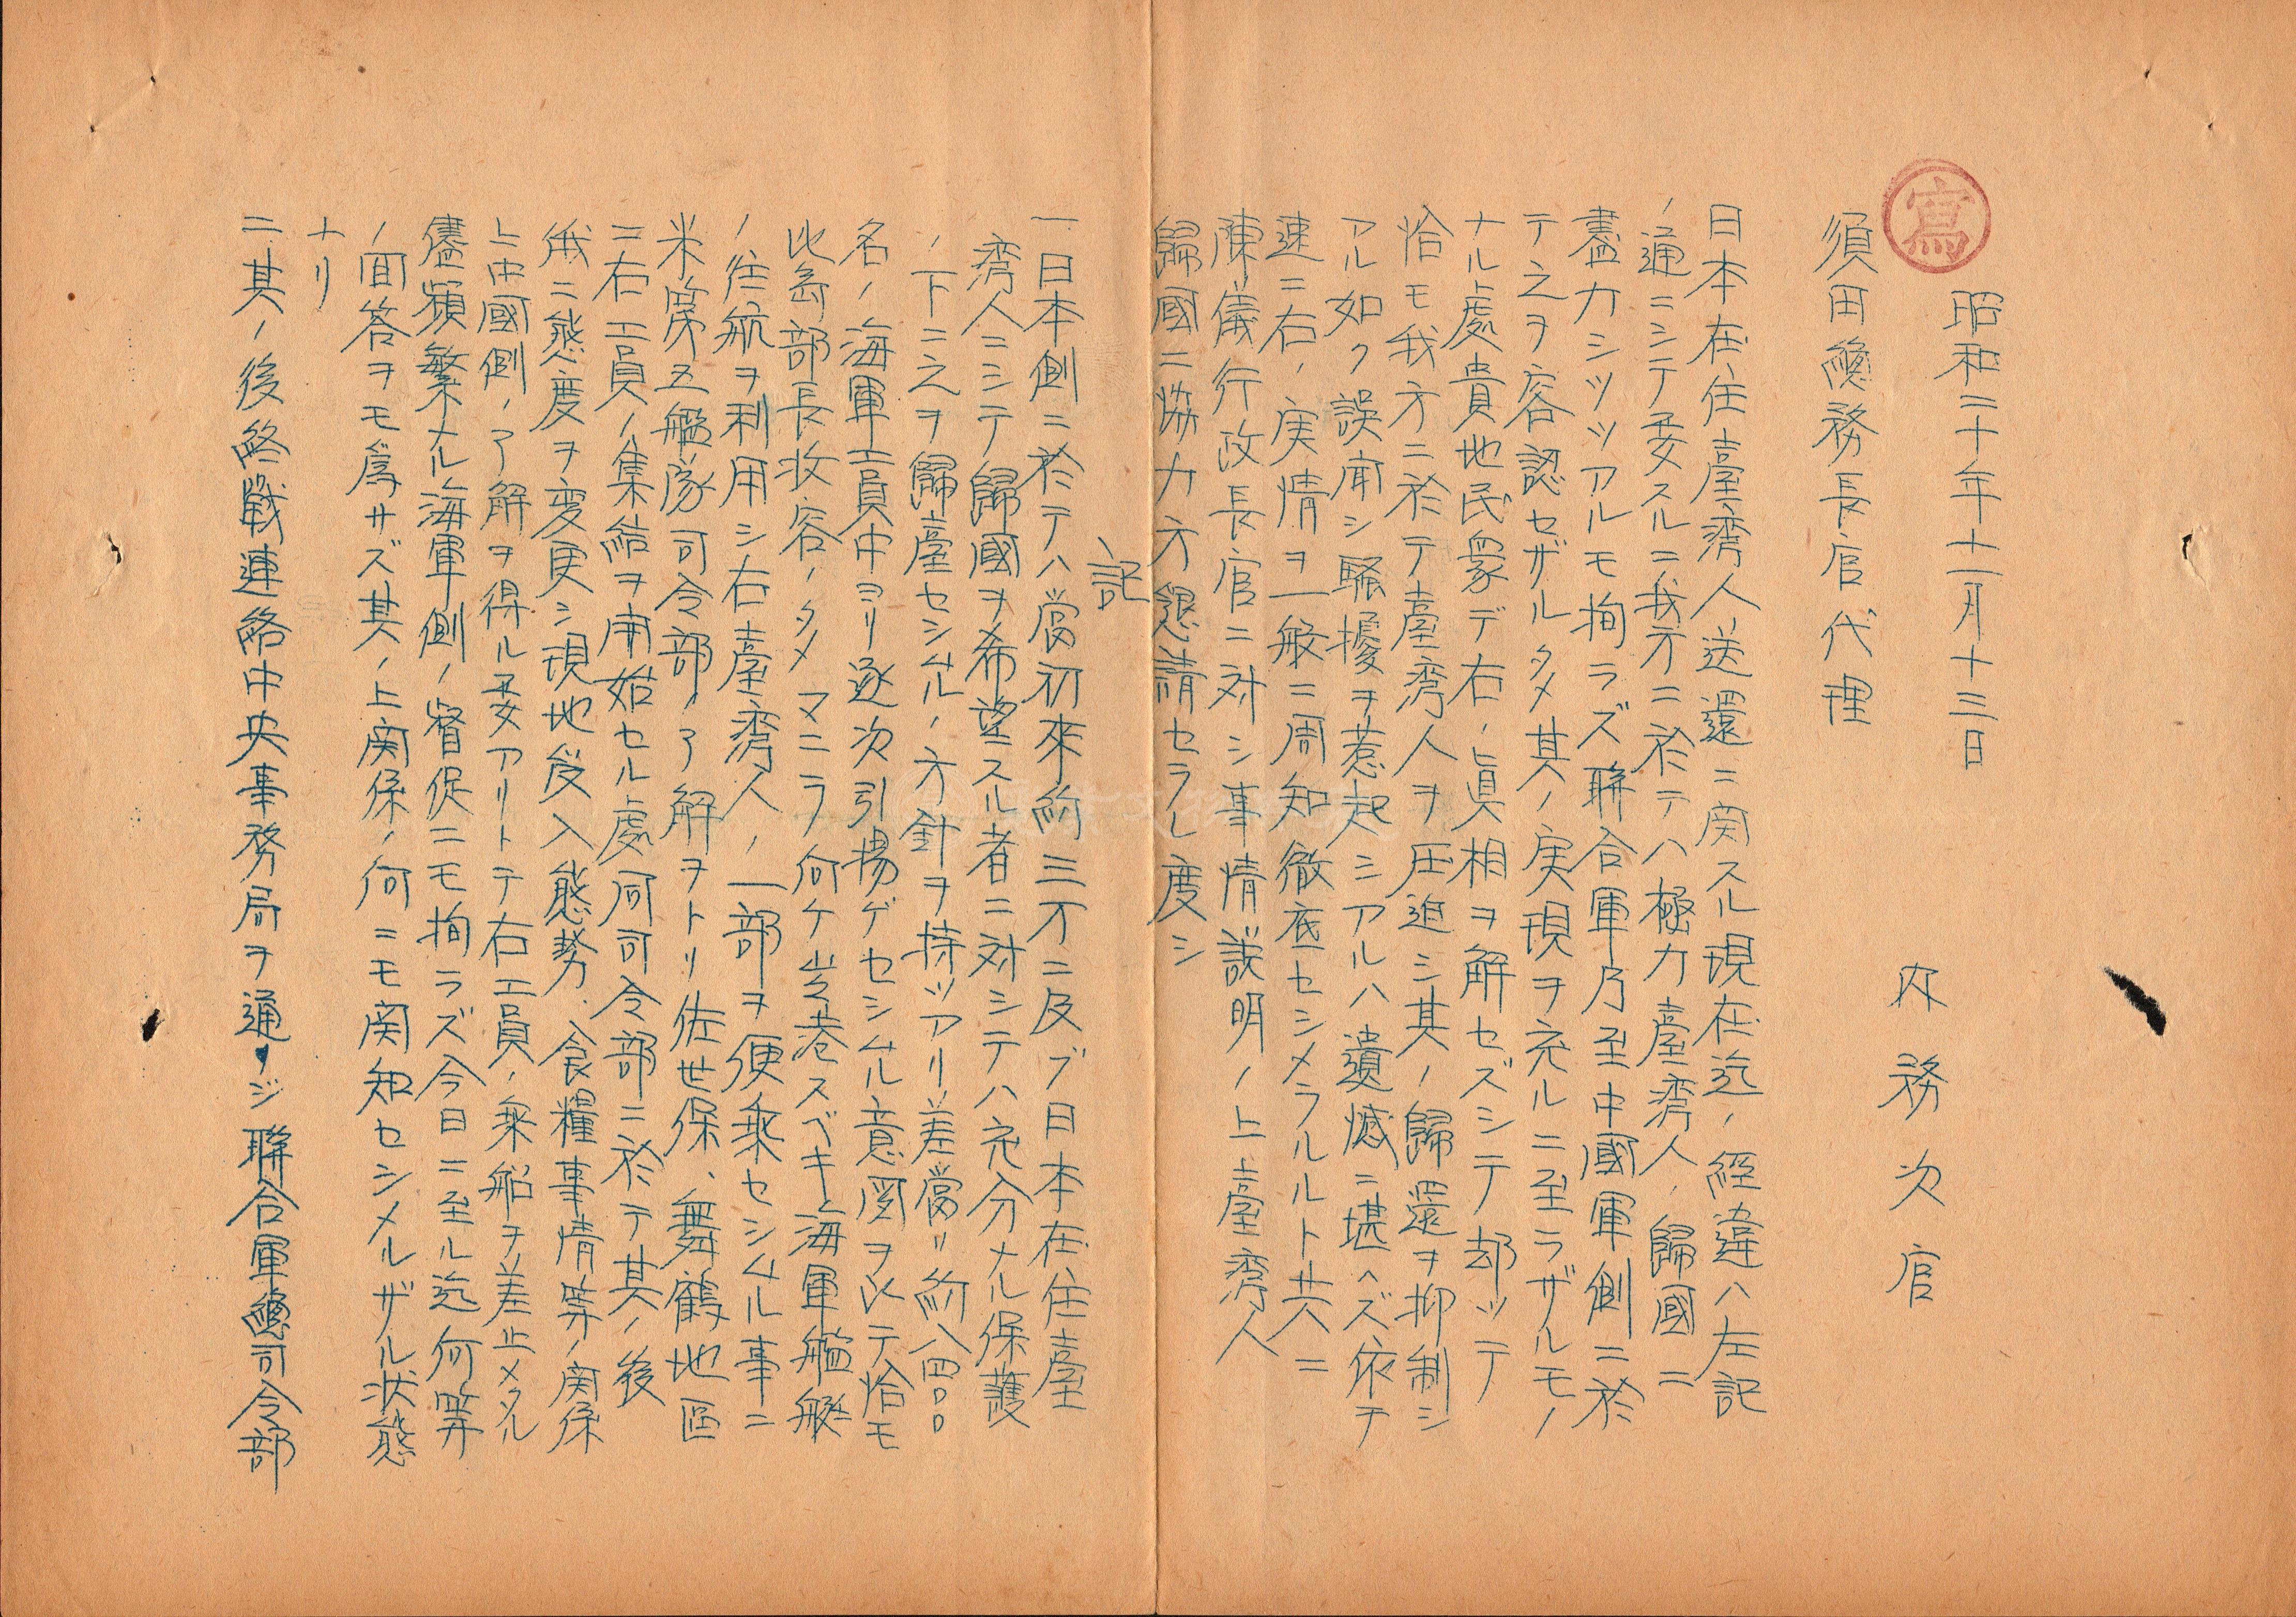 寫
昭和二十年十一月十三日
內務次官
須田總務長官代理
日本在住臺灣人送還ニ関スル現在迄ノ経違ハ左記
ノ通ニシテ要スルニ我方ニ於テハ極力臺灣人ノ歸國ニ
盡力シツツアルモ拘ラズ聯合軍乃至中國軍側ニ於
テ之ヲ容認セザルタメ其ノ実現ヲ充ルニ至ラザルモノ
ナル處貴地民衆デ右ノ眞相ヲ解セズシテ却ッテ
恰モ我方ニ於テ臺灣人ヲ圧迫シ其ノ歸還ヲ抑制シ
アル如ク誤聞シ騒擾ヲ惹起シアルハ遺憾ニ堪ヘズ依テ
速ニ右ノ実情ヲ一般ニ周知徹底セシメラルルト共ニ
陳儀行政長官ニ対シ事情説明ノ上臺灣人
歸國ニ協力方懇請セラレ度シ
記
一、日本側ニ於テハ當初來約三万ニ及ブ日本在住臺
灣人ニシテ歸國ヲ希望スル者ニ対シテハ充分ナル保護
ノ下ニ之ヲ歸臺セシムルノ方針ヲ持ツアリ差當リ約八四〇〇
名ノ海軍工員中ヨリ逐次引揚ゲセシムル意図ヲ以テ恰モ
比島部長收容ノタメマニラ向ケ出港スベキ海軍艦艇
ノ往航ヲ利用シ右臺灣人ノ一部ヲ便乘セシムル事ニ
米第五艦隊司令部ノ了解ヲトリ佐世保、舞鶴地區
ニ右工員ノ集結ヲ開始セル處同司令部ニ於テ其ノ後
俄ニ態度ヲ変更シ現地受入態勢、食糧事情等ノ関係
上中國側ノ了解ヲ得ル要アリトテ右工員ノ乘船ヲ差止メタル
儘頻繁ナル海軍側ノ督促ニモ拘ラズ今日ニ至ル迄何等
ノ回答ヲモ爲サズ其ノ上関係ノ何ニモ関知セシメルザル状態
ナリ
二、其ノ後終戰連絡中央事務局ヲ通ジ聯合軍總司令部